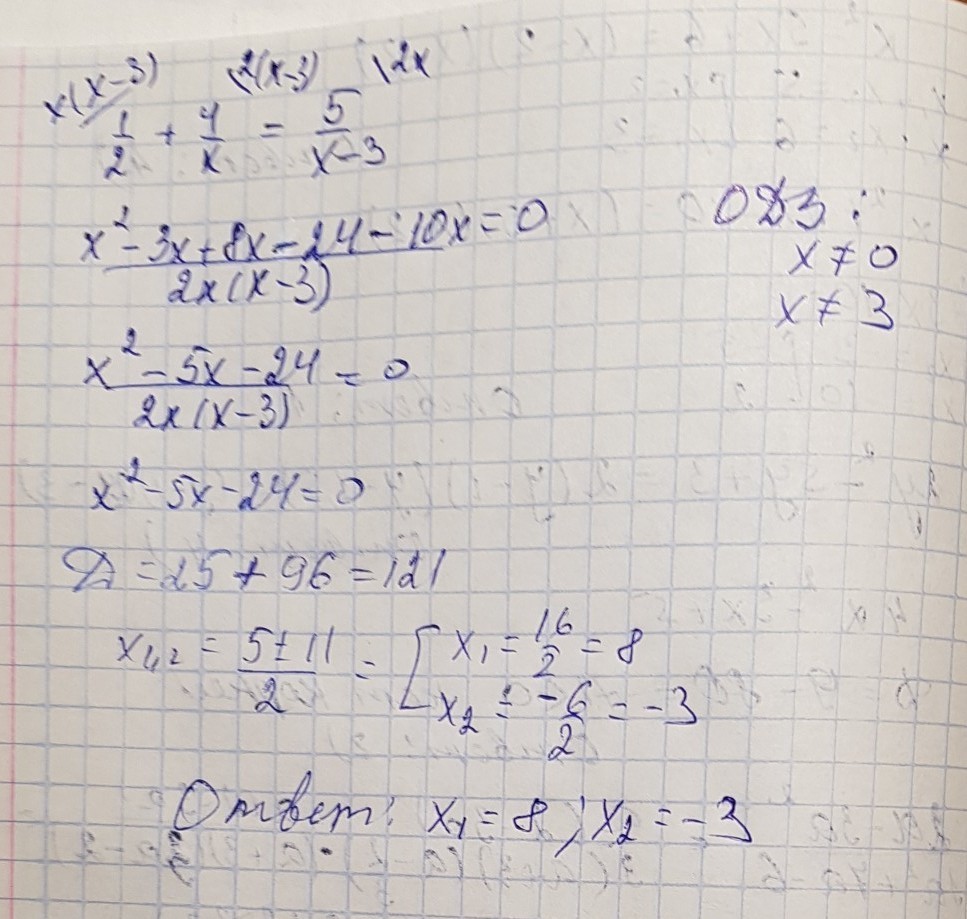 x(x-3) \2(x-3) \2x
1/2 + 4/x = 5/(x-3)
(x²-3x+8x-24-10x)/(2x(x-3)) = 0
ОДЗ:
x≠0
x≠3
(x²-5x-24)/(2x(x-3)) = 0
x²-5x-24=0
Д=25+96=121
x₁,₂ = (5±11)/2 = [ x₁ = 16/2 = 8
x₂ = -6/2 = -3
Ответ: x₁=8; x₂=-3